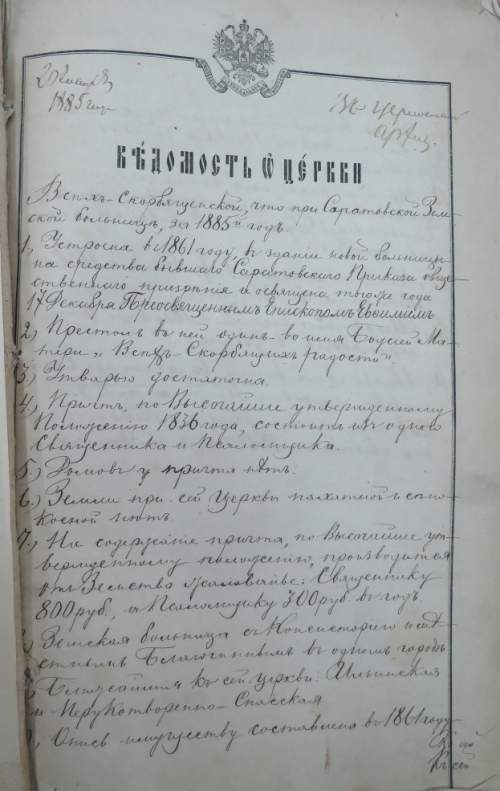 1885 году
ВѢДОМОСТЬ Ѡ ЦЕ́РКВИ
Всѣхъ-Скорбященской, что при Саратовской Зем-
ской больницѣ, за 1885й годъ.
1, Устроена въ 1861 году, въ зданіи новой больницы
на средства бывшаго Саратовскаго Приказа обще-
ственнаго призрѣнія и освящена тогоже года
17 Декабря Преосвященнымъ Епископомъ Евѳиміемъ
2, Престолъ въ ней одинъ во имя Божіей Ма-
тери „Всѣхъ Скорбящихъ радости"
3, Утварью достаточна.
4, Причтъ, по Высочайше утвержденному
Положенію 1836 года, состоитъ изъ одного
Священника и Псаломщика.
5.) Домовъ у причта нѣтъ.
6.) Земли при сей Церкви пахатной и сѣно-
косной нѣтъ.
7.) На содержаніе причта, по Высочайше ут-
вержденному положенію, производится
отъ Земства жалованье: Священнику
800 руб, а Псаломщику 300 руб въ годъ
Земская больница съ Консисторіей и мѣ-
стнымъ Благочиннымъ въ одномъ городѣ
Ближайшія къ сей церкви: Ильинская
и Нерукотворенно-Спасская
Опись имуществу составлена въ 1861 году